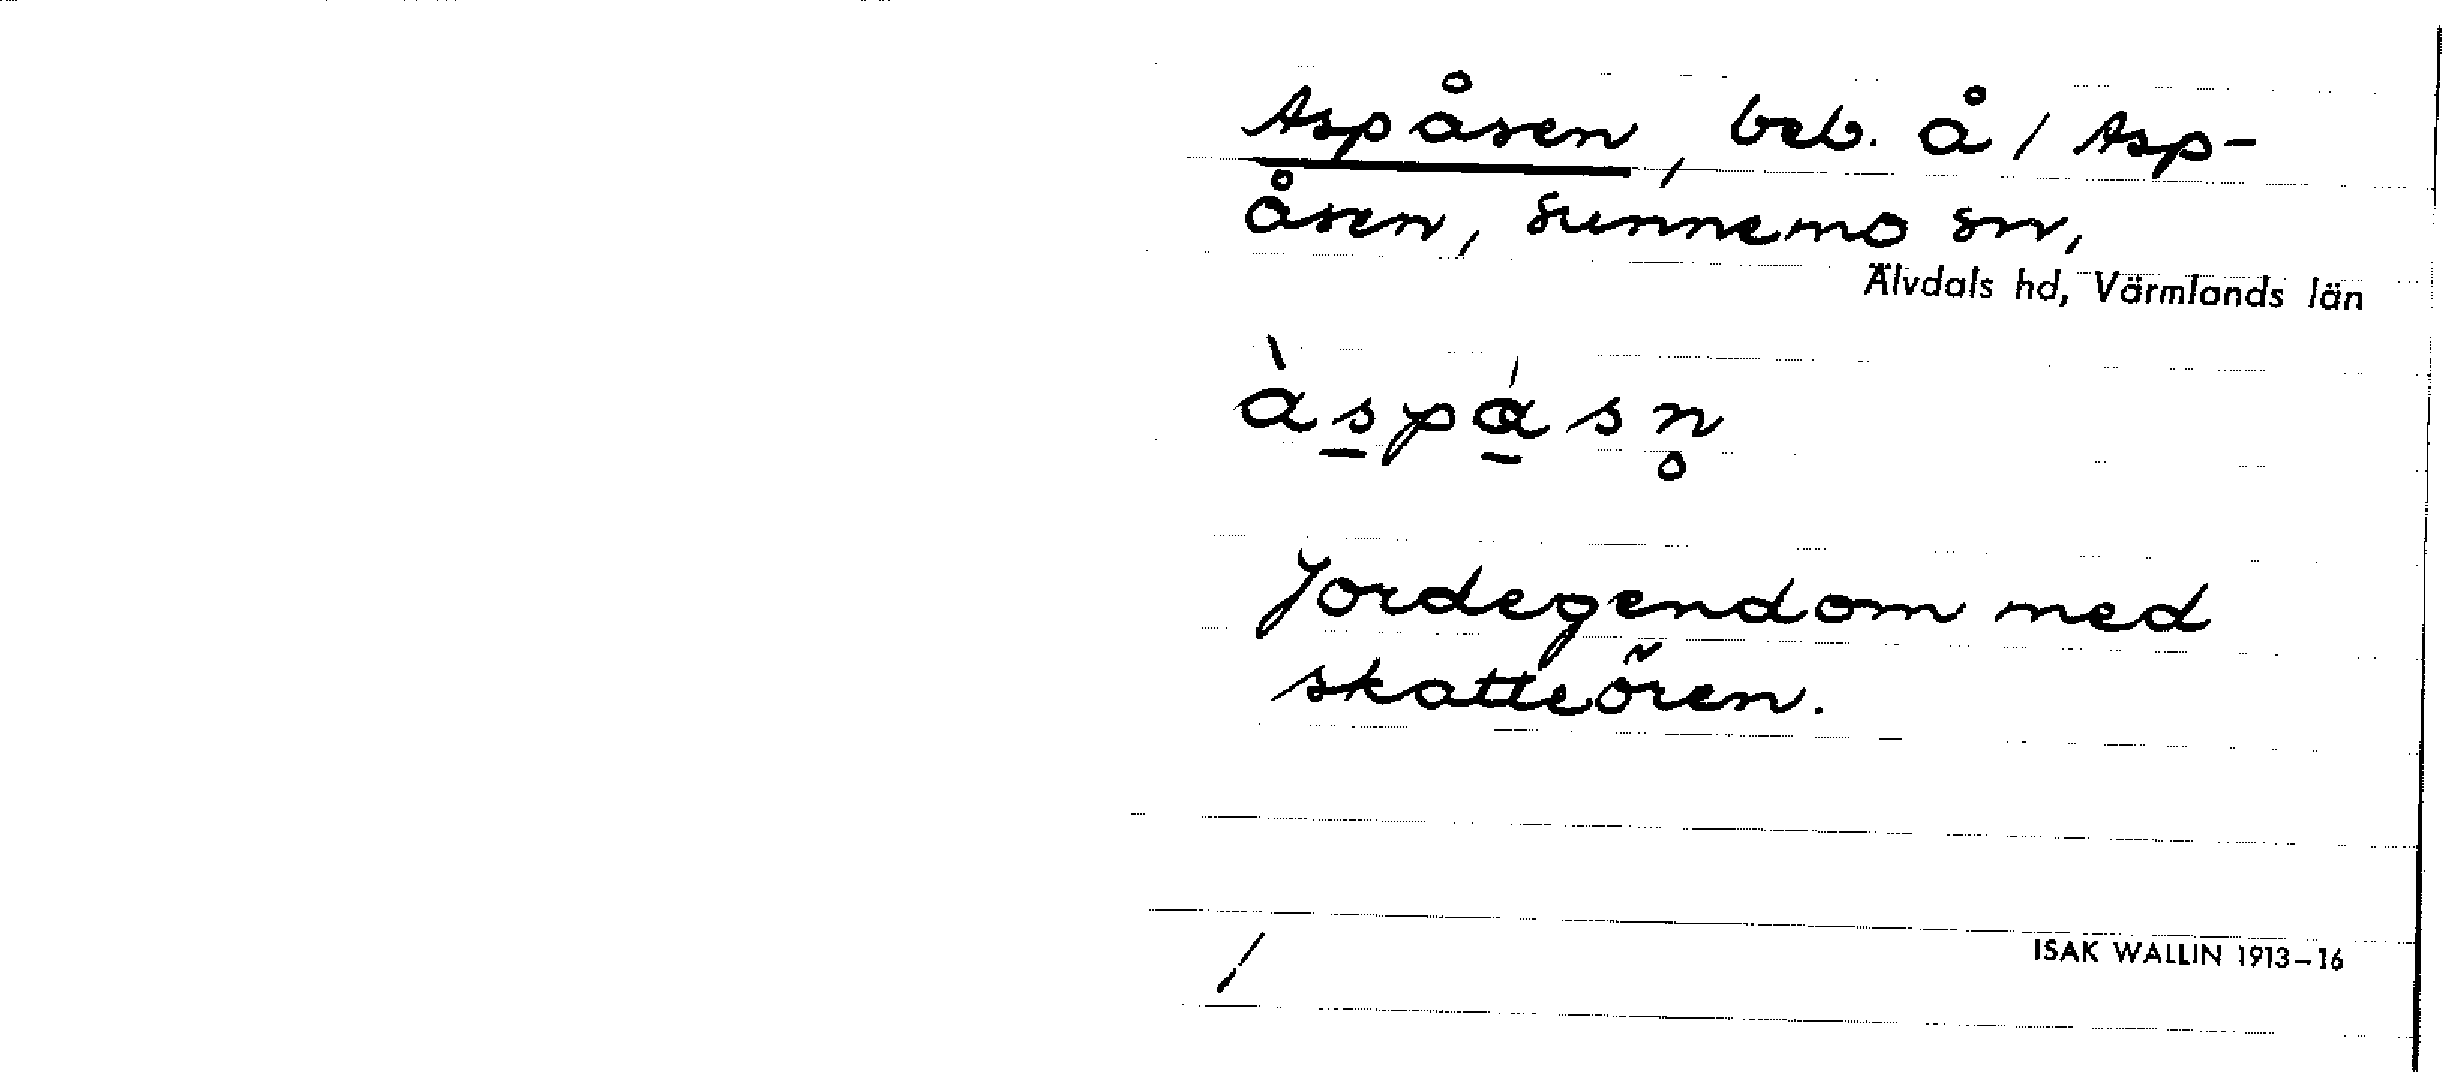 Aspåsen, beb. å / Asp-
åsen, Sunnemo sn,
Älvdals hd, Värmlands län
Jordegendom med
skatteören.
/
ISAK WALLIN 1913–16